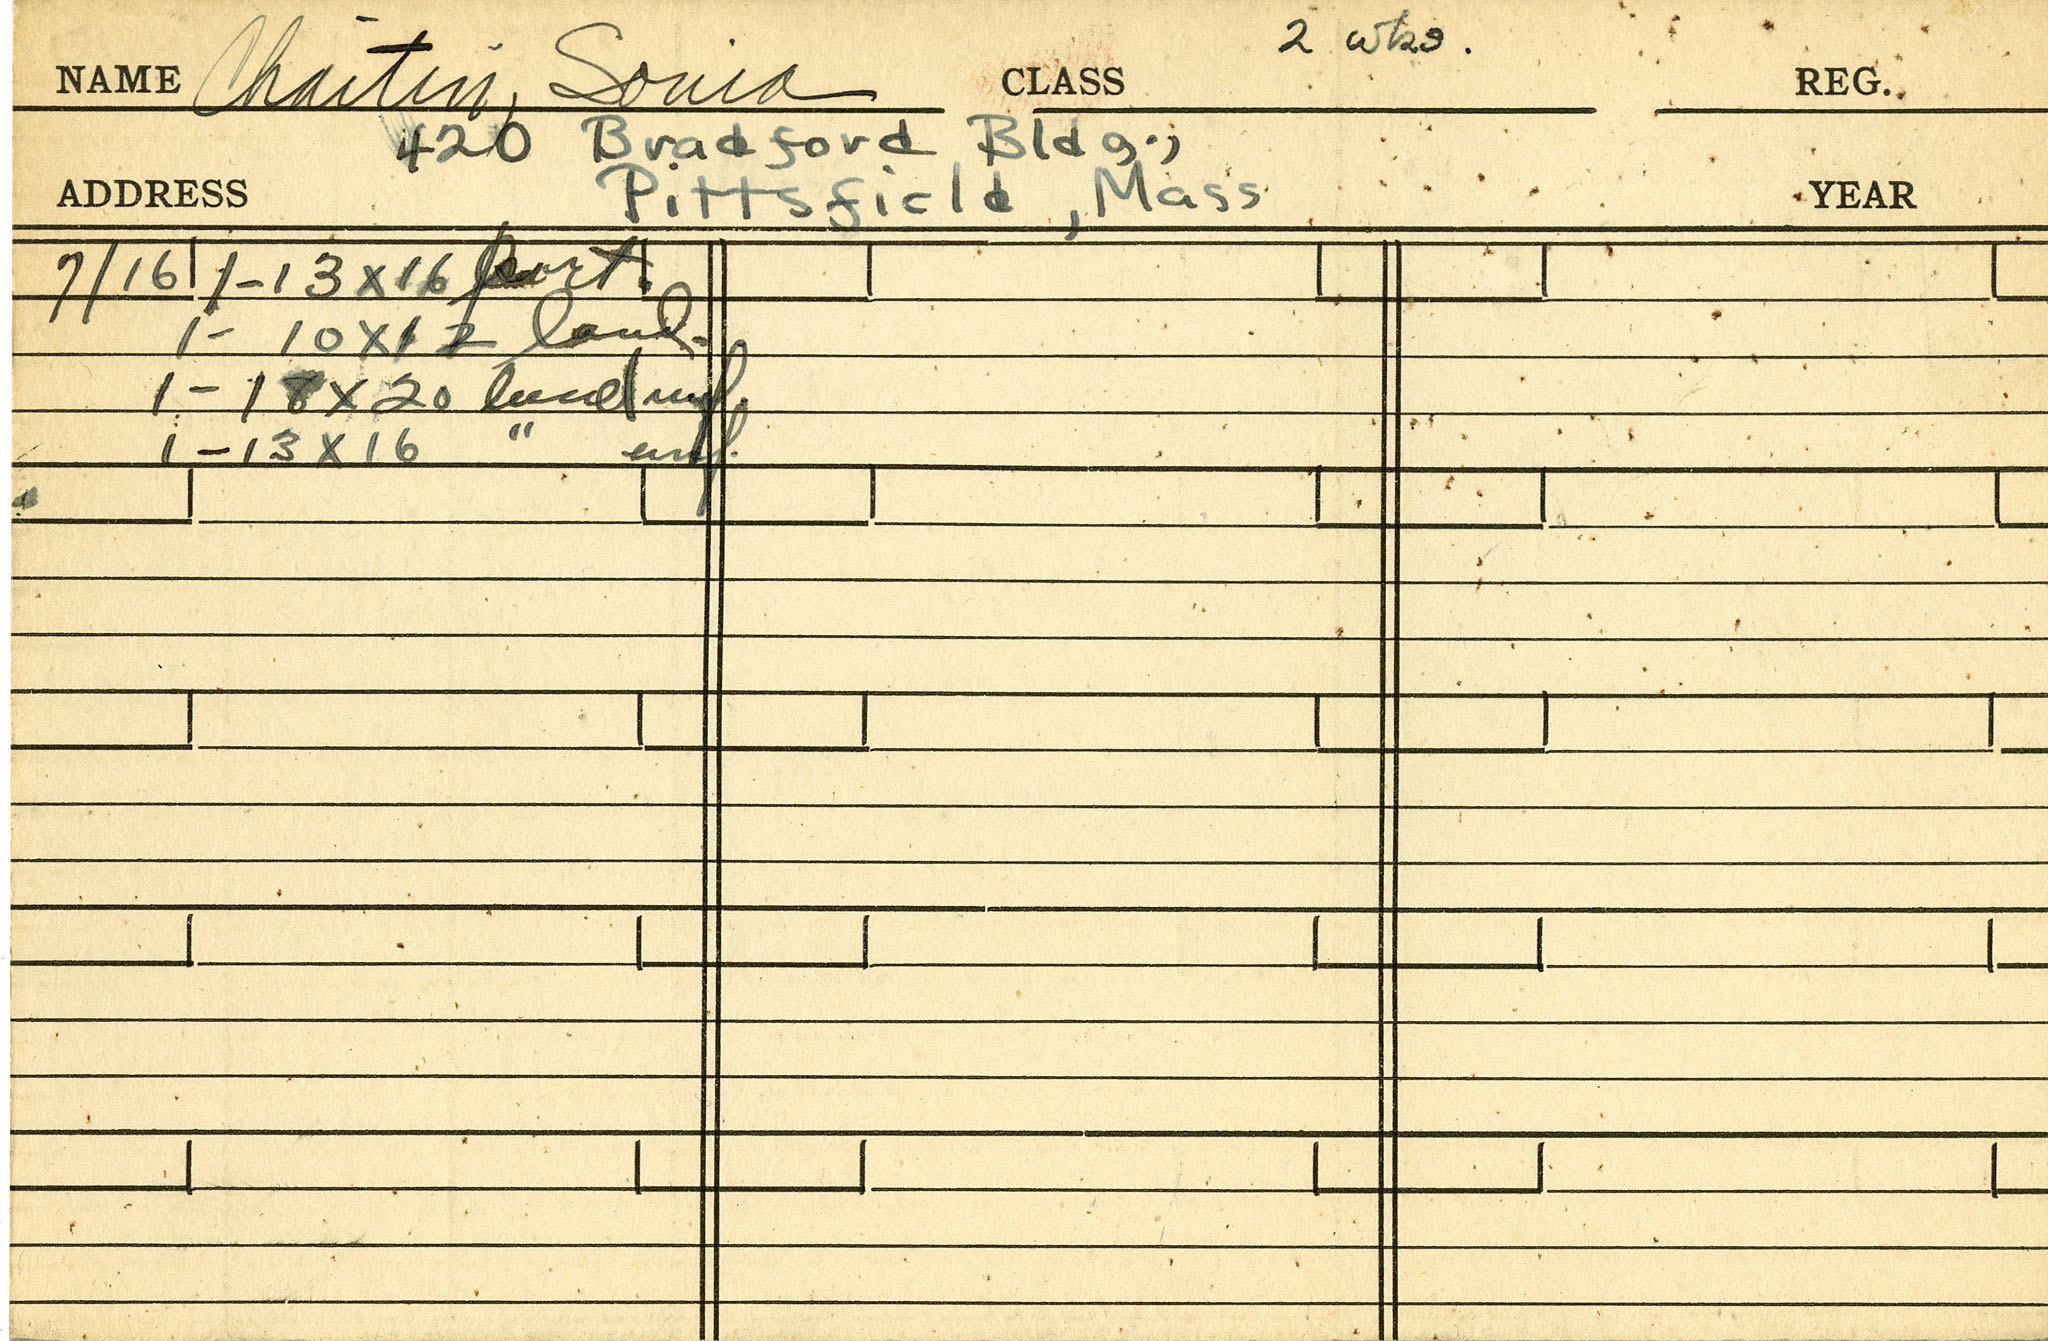 2 wks.
NAME Chaitin, Sonia CLASS REG.
420 Bradford Bldg.,
ADDRESS Pittsfield, Mass YEAR
7/16 1-13x16 port.
1- 10x12 land.
1-18x20 land unf.
1-13x16 " unf.